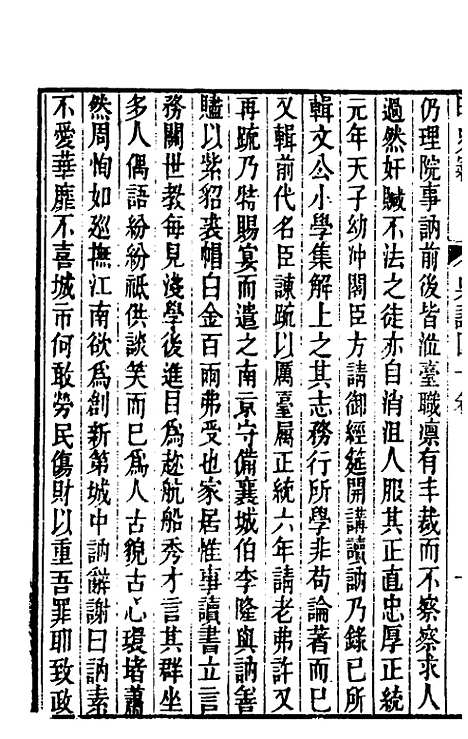 仍理院事訥前後皆涖臺職凜有丰裁而不察察求人
過然奸贓不法之徒亦自消沮人服其正直忠厚正統
元年天子幼沖閣臣方請御經筵開講讀訥乃錄已所
輯文公小學集解上之其志務行所學非苟論著而已
又輯前代名臣諫疏以厲臺屬正統六年請老弗許又
再疏乃特賜宴而遣之南京守備襄城伯李隆與訥善
贐以紫貂裘帽白金百兩弗受也家居惟事讀書立言
務關世教每見淺學後進目為趂航船秀才言其群坐
多人偶語紛紛祇供談笑而已為人古貌古心環堵蕭
然周恂如巡撫江南欲為創新第城中訥辭謝曰訥素
不愛華靡不喜城市何敢勞民傷財以重吾罪耶致政